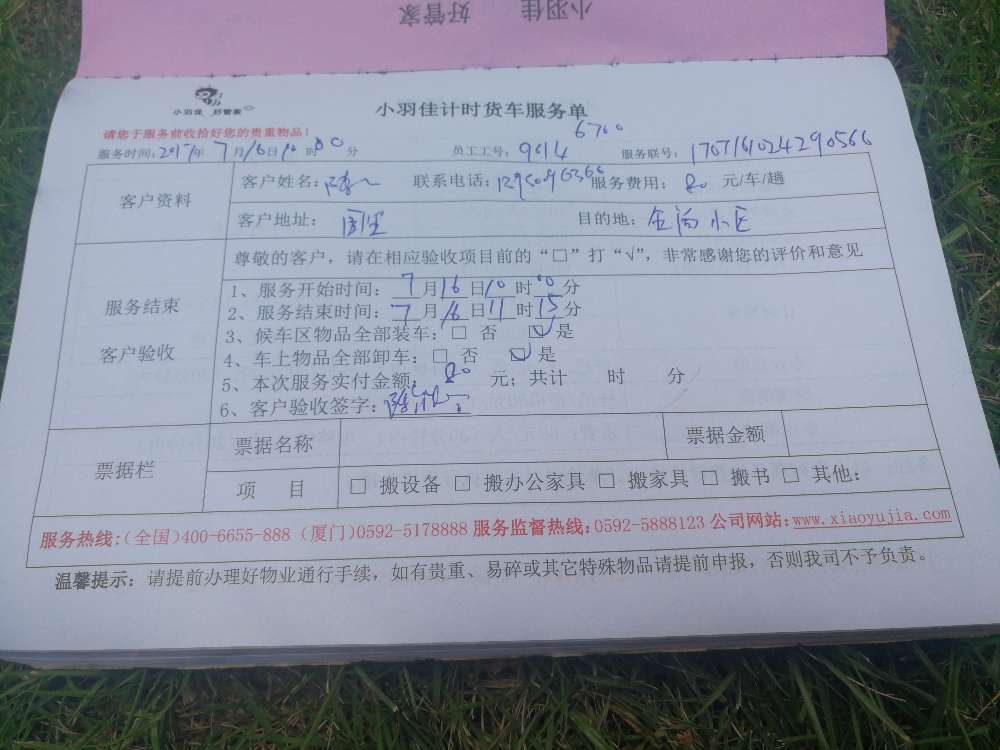 小羽佳 好管家
小羽佳 好管家
小羽佳计时货车服务单
请您于服务前收拾好您的贵重物品！
6700
服务时间：2017年7月16日10时00分 员工工号：9014 服务联号：1707161024290566
客户资料
客户姓名： 联系电话： 服务费用：80元/车/趟
客户地址： 目的地：金尚小区
尊敬的客户，请在相应验收项目前的“□”打“√”，非常感谢您的评价和意见
服务结束
客户验收
1、服务开始时间：7月16日10时00分
2、服务结束时间：7月16日11时15分
3、候车区物品全部装车：□ 否 ☑ 是
4、车上物品全部卸车：□ 否 ☑ 是
5、本次服务实付金额：80元；共计 时 分
6、客户验收签字：
票据栏
票据名称 票据金额
项 目 □ 搬设备 □ 搬办公家具 □ 搬家具 □ 搬书 □ 其他：
服务热线：(全国)400-6655-888 (厦门)0592-5178888 服务监督热线：0592-5888123 公司网站：www.xiaoyujia.com
温馨提示：请提前办理好物业通行手续，如有贵重、易碎或其它特殊物品请提前申报，否则我司不予负责。